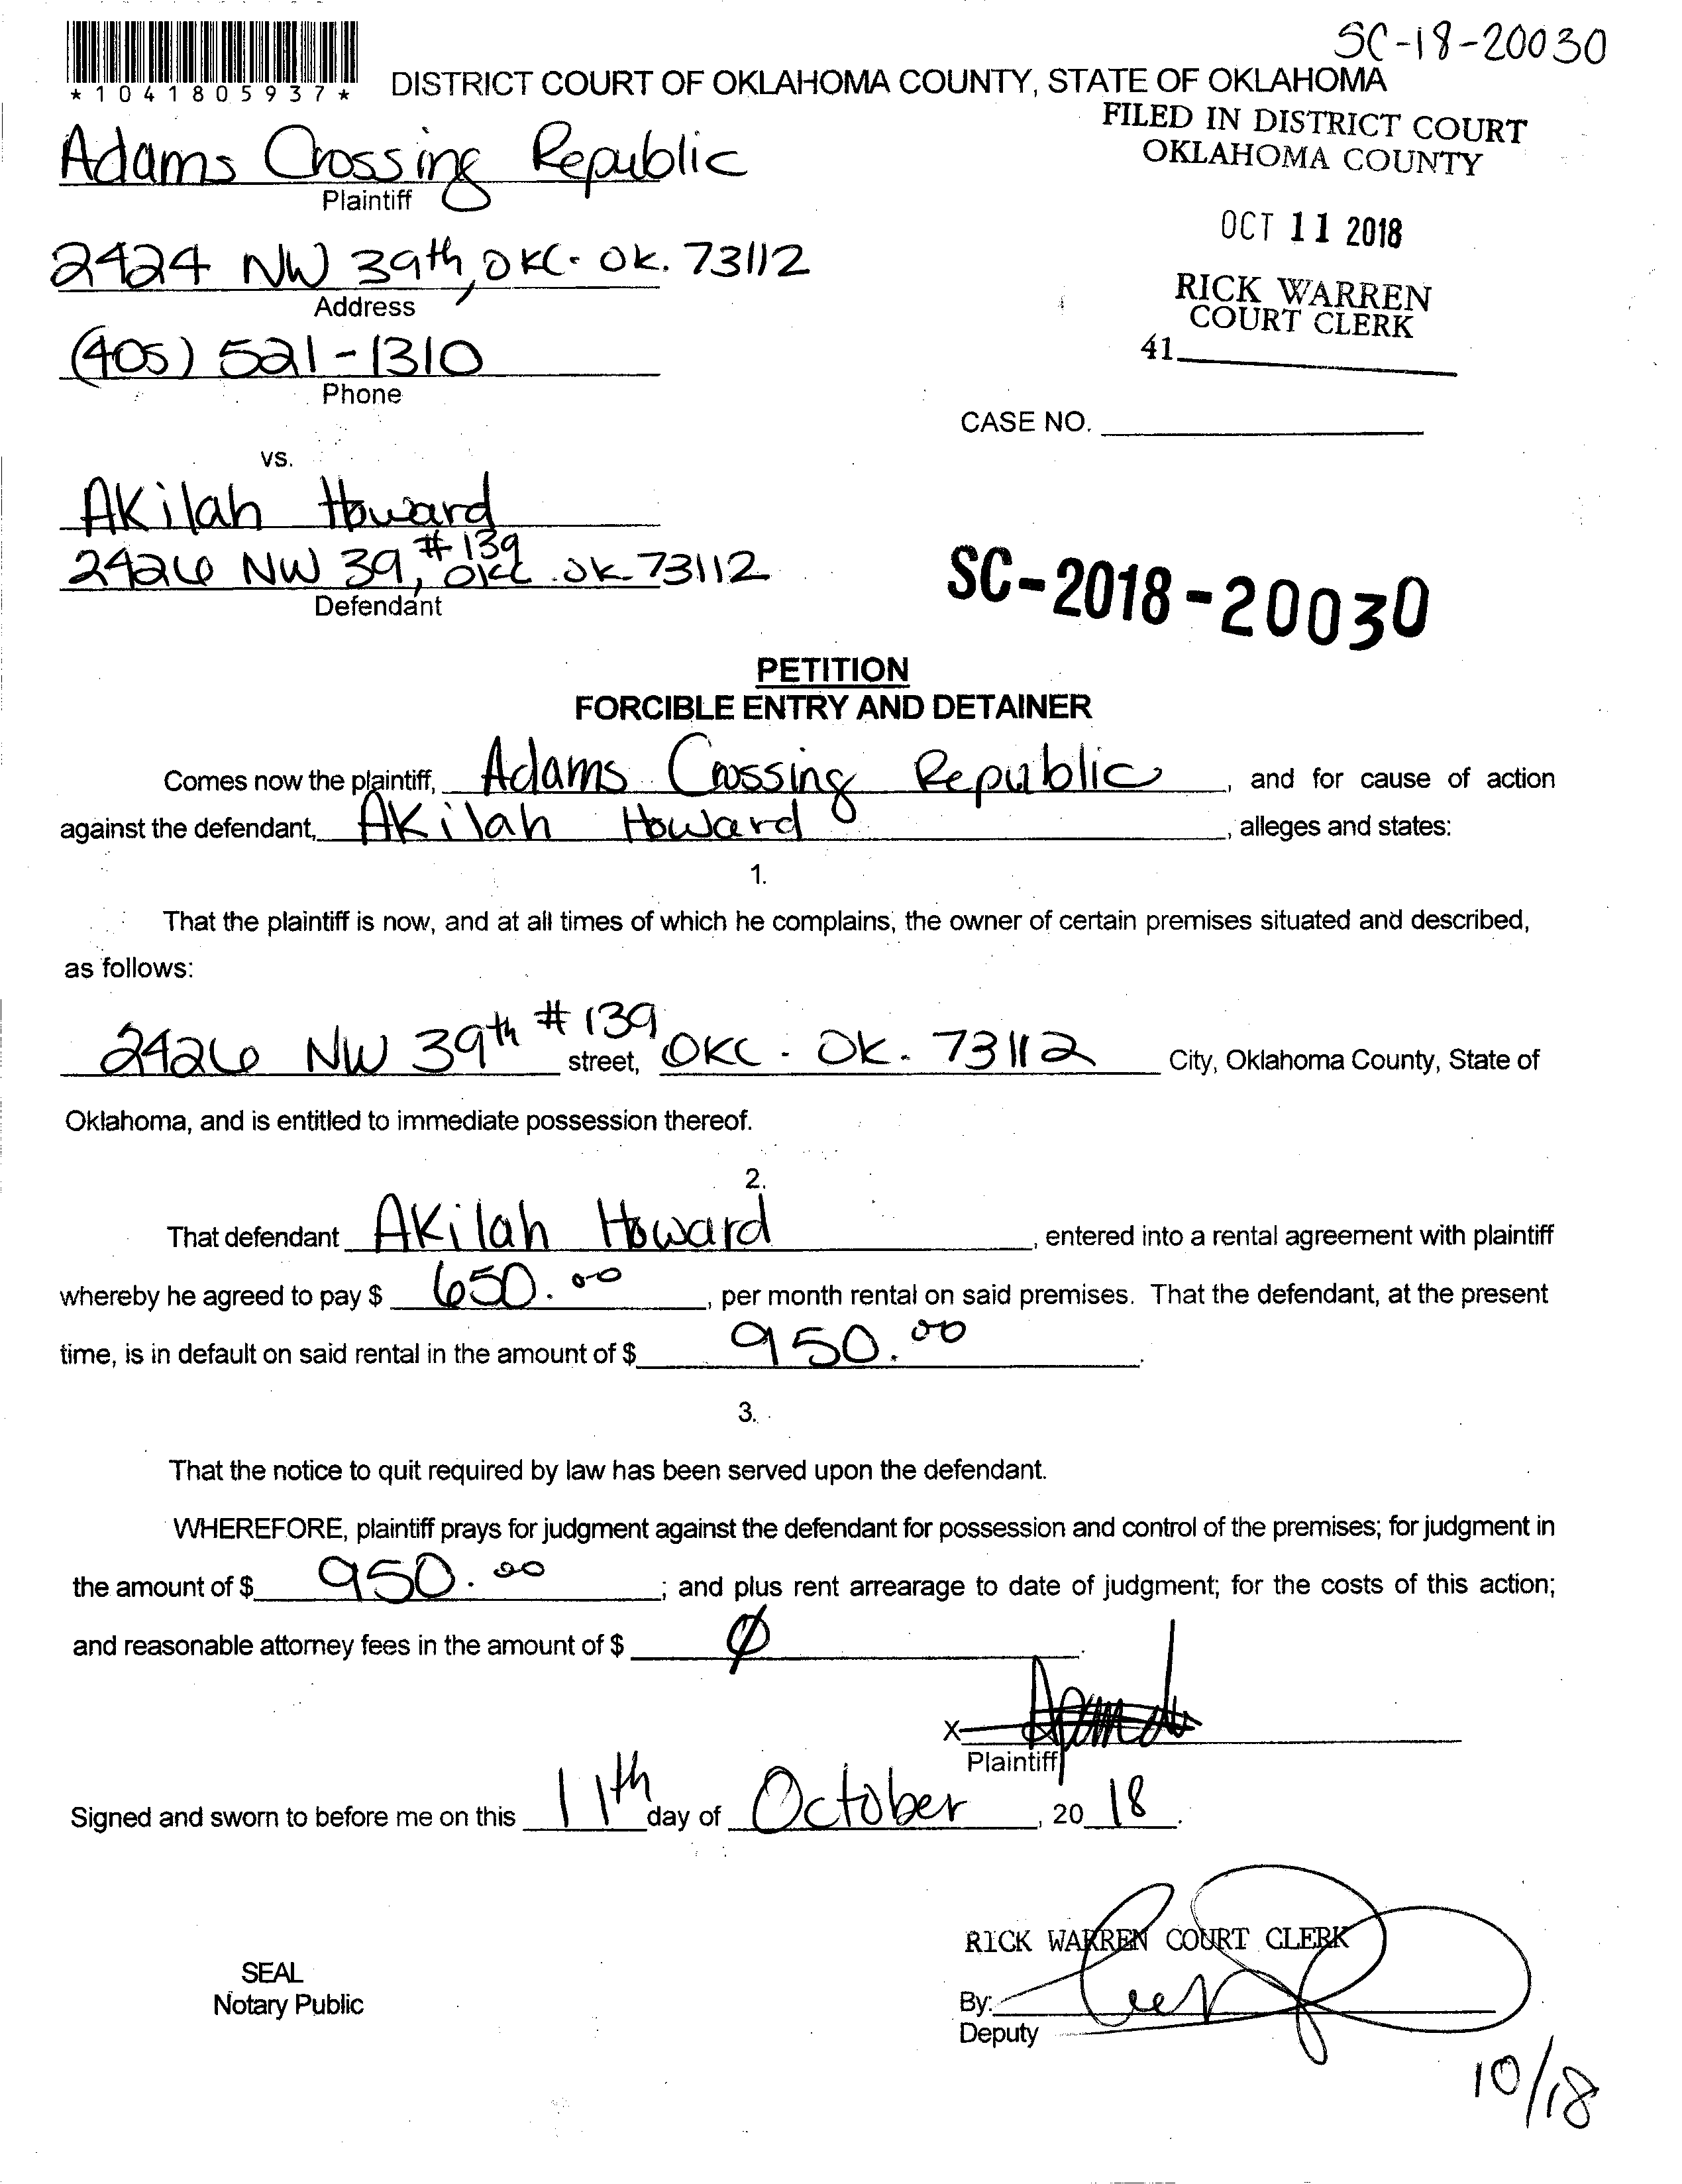 SC-18-20030
*1041805937*
DISTRICT COURT OF OKLAHOMA COUNTY, STATE OF OKLAHOMA
FILED IN DISTRICT COURT
OKLAHOMA COUNTY
Adams Crossing Republic
Plaintiff
OCT 11 2018
2424 NW 39th, OKC. OK. 73112
Address
RICK WARREN
COURT CLERK
41
(405) 521-1310
Phone
CASE NO.
vs.
Akilah Howard
2426 NW 39, #139 OKC OK 73112
Defendant
SC-2018-20030
PETITION
FORCIBLE ENTRY AND DETAINER
Comes now the plaintiff, Adams Crossing Republic, and for cause of action
against the defendant, Akilah Howard, alleges and states:
1.
That the plaintiff is now, and at all times of which he complains, the owner of certain premises situated and described,
as follows:
2426 NW 39th #139 street, OKC. OK. 73112 City, Oklahoma County, State of
Oklahoma, and is entitled to immediate possession thereof.
2.
That defendant Akilah Howard, entered into a rental agreement with plaintiff
whereby he agreed to pay $ 650.00, per month rental on said premises. That the defendant, at the present
time, is in default on said rental in the amount of $ 950.00.
3.
That the notice to quit required by law has been served upon the defendant.
WHEREFORE, plaintiff prays for judgment against the defendant for possession and control of the premises; for judgment in
the amount of $ 950.00; and plus rent arrearage to date of judgment; for the costs of this action;
and reasonable attorney fees in the amount of $ Ø.
X
Plaintiff
Signed and sworn to before me on this 11th day of October, 2018.
RICK WARREN COURT CLERK
SEAL
Notary Public
By:
Deputy
10/18